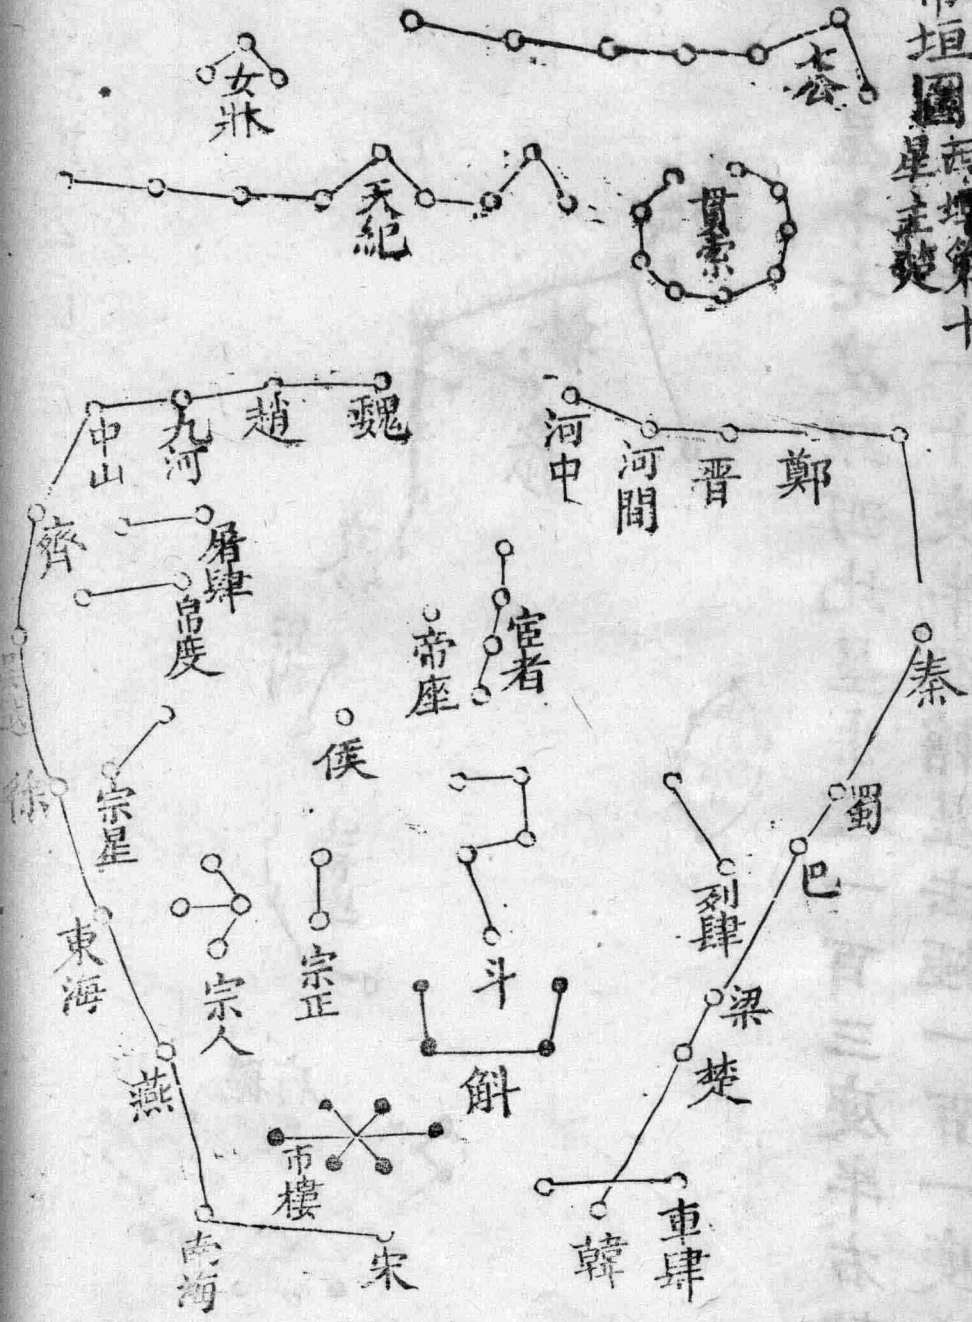 垣圖
西垣第十
星主楚
七公
女牀
天紀
貫索
魏
趙
九河
中山
河中
河間
晋
鄭
齊
屠肆
帛度
宦者
帝座
秦
侯
徐
宗星
蜀
巴
列肆
東海
宗人
宗正
斗
梁
楚
燕
斛
市樓
南海
宋
韓
車肆